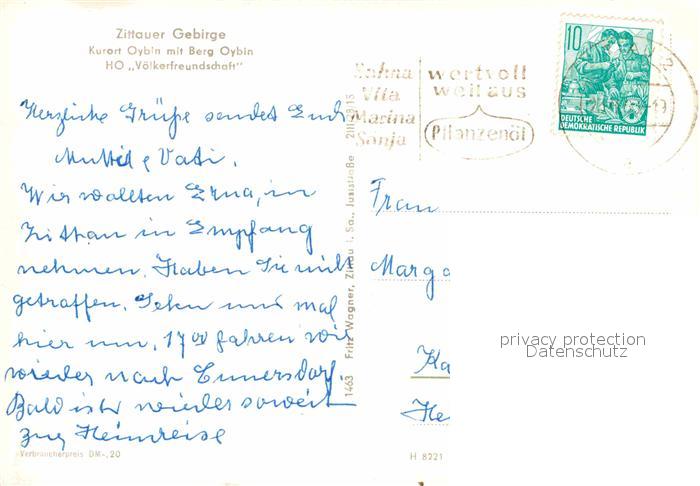 Zittauer Gebirge
Kurort Oybin mit Berg Oybin
HO „Völkerfreundschaft"
Herzliche Grüße sendet Euch
Mutti & Vati.
Wir wollten Erna, in
Zittau in Empfang
nehmen. Haben Sie nicht
getroffen. Sehn uns mal
hier um. 17⁰⁰ fahren wir
wieder nach Cunnersdorf.
Bald ist wieder soweit
zur Heimreise
Verbraucherpreis DM -,20
1463 Fritz Wagner, Zittau i. Sa., Juststraße
Sahna
Vita
Marina
Sonja
wertvoll
weil aus
Pflanzenöl
10
DEUTSCHE
DEMOKRATISCHE REPUBLIK
Frau
Marga
Ka
He
H 8221
privacy protection
Datenschutz